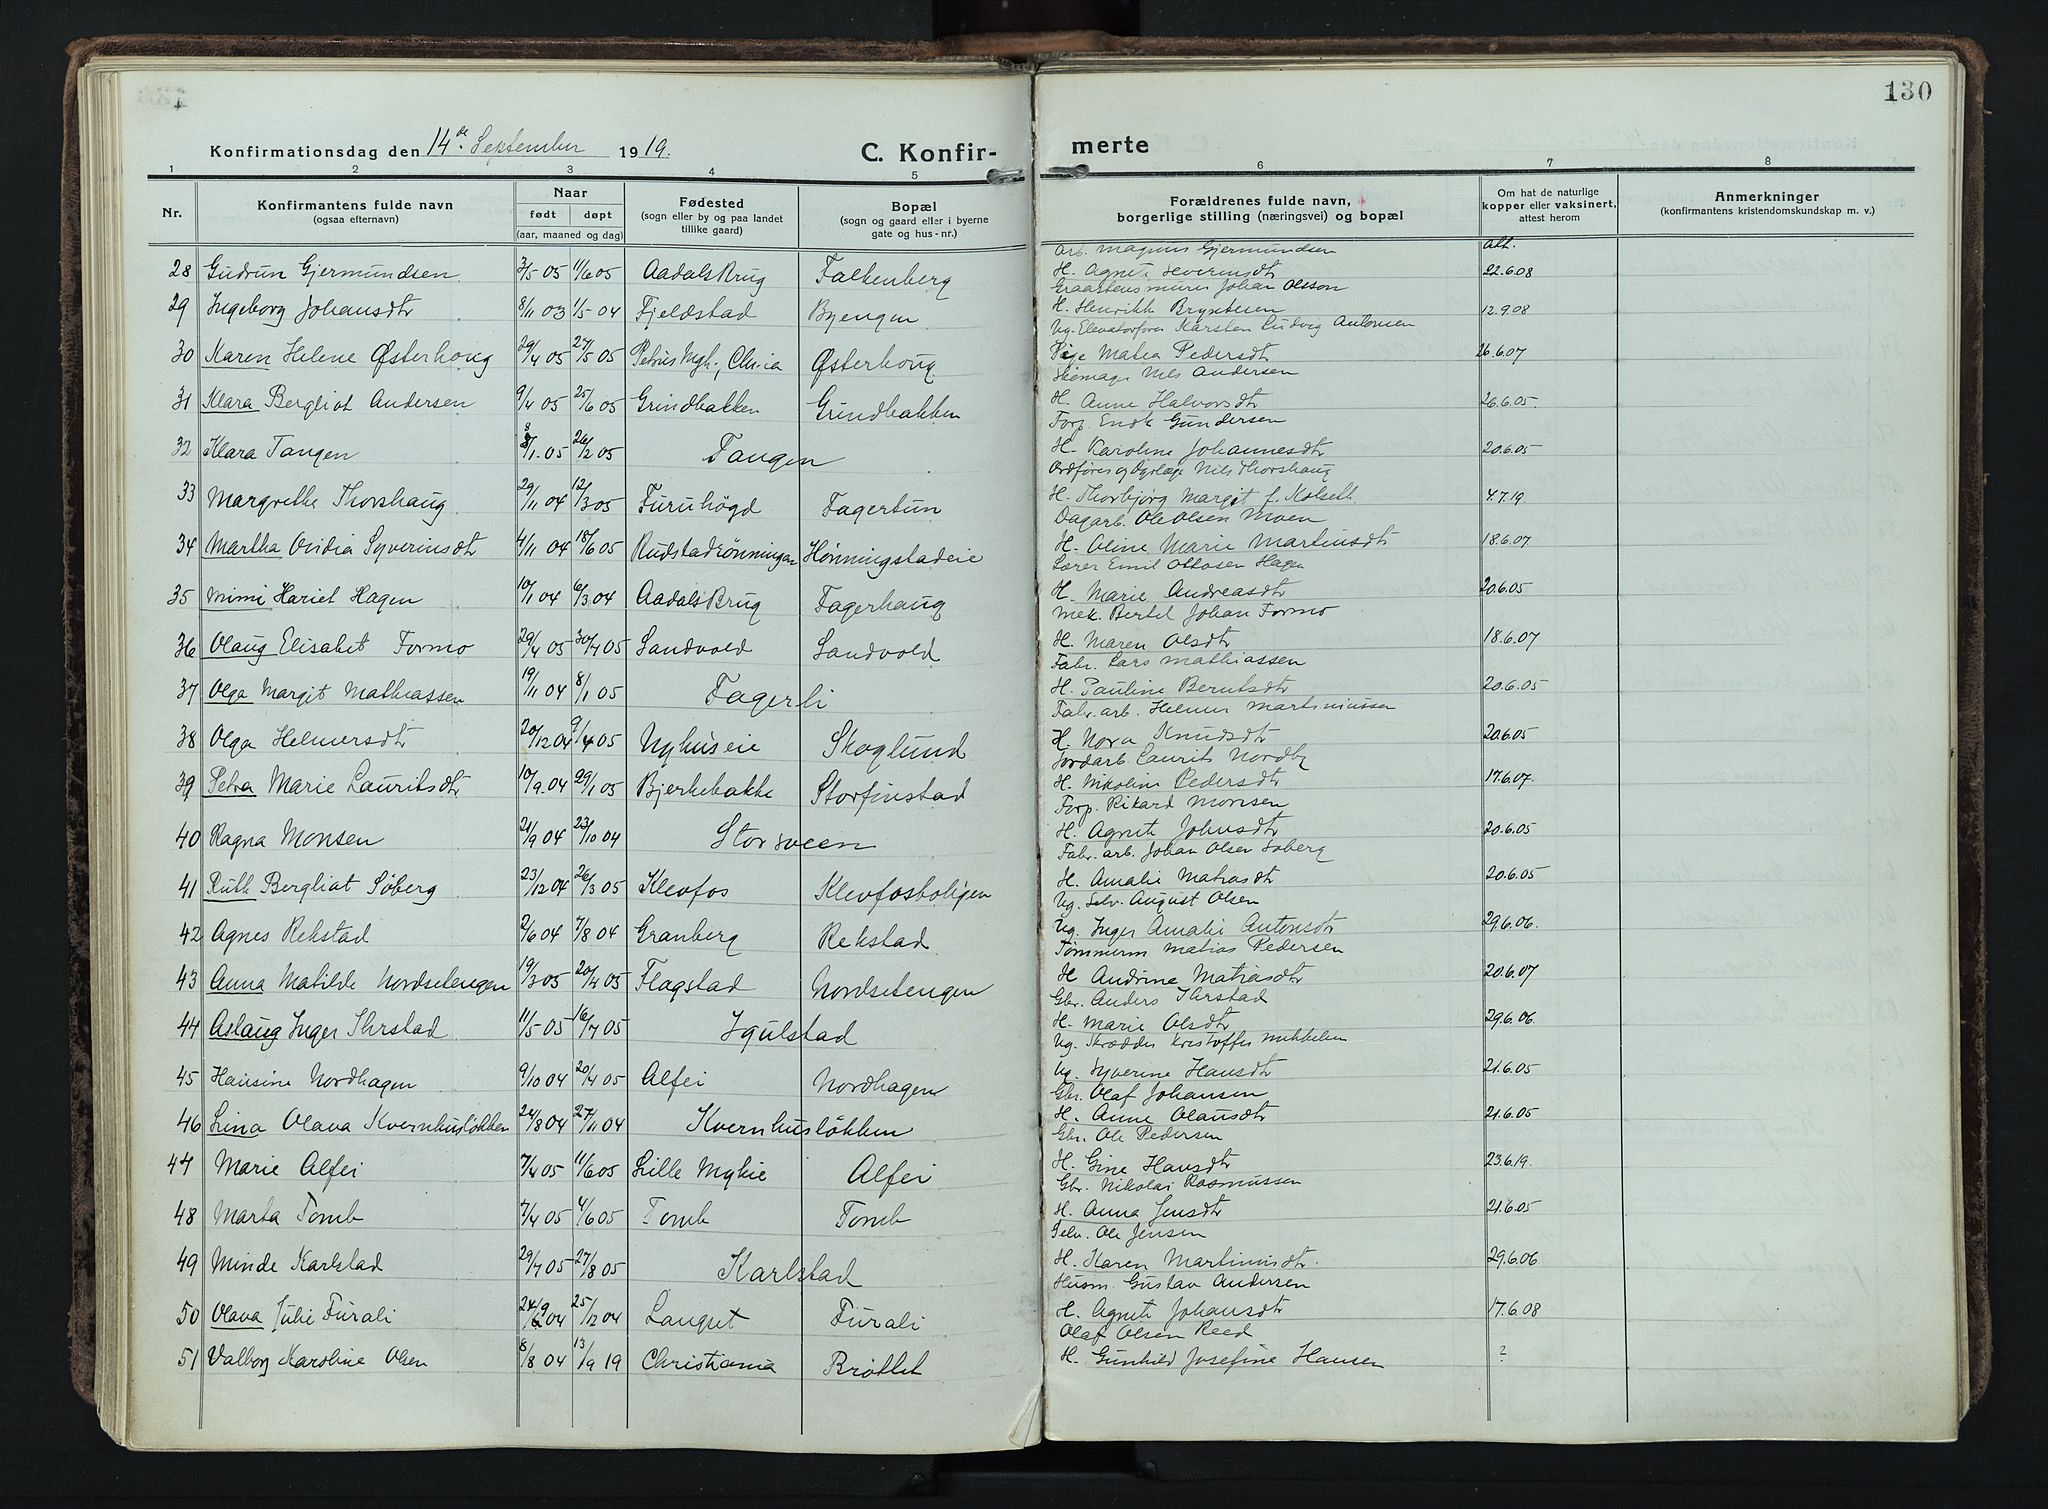 130
Konfirmationsdag den 14de September 1919.
C. Konfir-
merte
1 2 3 4 5 6 7 8
Nr. Konfirmantens fulde navn (ogsaa efternavn) Naar født døpt (aar, maaned og dag) Fødested (sogn eller by og paa landet tillike gaard) Bopæl (sogn og gaard eller i byerne gate og hus-nr.)
Forældrenes fulde navn, borgerlige stilling (næringsvei) og bopæl Om hat de naturlige kopper eller vaksinert, attest herom Anmerkninger (konfirmantens kristendomskundskap m. v.)
Arb. Magnus Gjermundsen att.
28 Gudrun Gjermundsen 3/5 05 11/6 05 Aadals Brug Falkenberg H. Agnete Severinsdtr 22.6.08
Johan Olsson
29 Ingeborg Johansdtr 8/11 03 1/5 04 Fjeldstad Byengen H. Henrikke 12.9.08
Ug. Elevatorfører Karsten Ludvig Antonsen
30 Karen Helene Østerhoug 29/4 05 27/5 05 Petrus Mgh., Chr.ia Østerhoug Pige Matea Pedersdt 26.6.07
Skomager Nils Andersen
31 Klara Bergliot Andersen 9/4 05 25/6 05 Grindbakken Grindbakken H. Anne Halvorsdt 26.6.05.
Forp. Gundersen
32 Klara Tangen 8/1.05 26/2 05 Tangen H. Karoline Johannesdtr 20.6.05
Ordfører og Dyrlæge Nils Thorshaug
33 Margrethe Thorshaug 29/11 04 12/3 05 Furuhögd Fagertun H. Thorbjørg Margit f. Kolseth 4.7.19.
Dagarb. Ole Olsen Moen
34 Martha Ovidia Syverinsdtr 4/11 04 18/6 05 Rudstadrönningen Hønningstadeie H. Oline Marie Martinsdtr 18.6.07
Lærer Emil Ottosen Hagen
35 Mimi Hariet Hagen 10/1 04 6/3 04 Aadals Brug Fagerhaug H. Marie Andreasdtr 20.6.05
Mek. Bertel Johan Formo
36 Olaug Elisabet Formo 29/4 05 30/7 05 Sandvold Sandvold H. Maren Olsdtr 18.6.07
Fabr. Lars Mathiassen
37 Olga Margit Mathiassen 19/11 04 8/1 05 Fagerli H. Pauline Berntsdtr 20.6.05
Fabr. arb. Helmer Martiniussen
38 Olga Helmersdtr 20/12 04 9/4 05 Nyhuseie Skoglund H. Nora Knudsdtr 20.6.05
Jordarb Laurits Nordby
39 Petra Marie Lauritsdtr 10/9.04 29/1 05 Bjerkebakke Storfinstad H. Nikoline Pedersdtr 17.6.07.
Forp. Rikard Monsen
40 Ragna Monsen 21/9 04 23/10 04 Storsveen H. Agnete Johnsdtr 20.6.05
Fabr. arb. Johan Olsen Soberg
41 Ruth Bergliot Söberg 23/12 04 26/3 05 Klevfos Klevfosboligen H. Amalie Matiasdtr 20.6.05
Ug. Selv. August Olsen
42 Agnes Rekstad 2/6 04 7/8 04 Granberg Rekstad Ug. Inger Amalie Antonsdtr 29.6.06.
Tømmerm Matias Pedersen
43 Anna Matilde Nordsetengen 19/3 05 20/4 05 Flagstad Nordsetengen H Andrine Matiasdtr 20.6.07
Gbr. Anders Ihrstad
44 Aslaug Inger Ihrstad 11/5 05 16/7 05 Igulstad H. Marie Olsdtr 29.6.06.
Ug. Skrædder Kristoffer Mikkelsen
45 Hansine Nordhagen 9/10 04 20/4 05 Alfei Nordhagen Ug. Syverine Hansdtr 21.6.05
Gbr. Olaf Johansen
46 Lina Olava Kvernhusløkken 24/8 04 27/11 04 Kvernhusløkken H. Anne Olausdtr 21.6.05
Gbr. Ole Pedersen
47 Marie Alfei 7/4 05 11/6 05 Lille Mykie Alfei H. Gine Hansdtr 23.6.19.
Gbr. Nikolai Rasmussen
48 Marta Tomb 2/4 05 4/6 05 Tomb Tomb H. Anna Jensdtr 21.6.05
Selv. Ole Jensen
49 Minde Karlstad 29/7 05 27/8 05 Karlstad H. Karen Martinusdtr. 29.6.06
Husm. Gustav Andersen
50 Olava Julie Furali 24/9 04 25/12 04 Langset Furali H. Agnete Johansdtr 17.6.08
Olaf Olsen Reed
51 Valborg Karoline Olsen 8/8 04 13/9 19 Christiania Bröttet H. Gunhild Josefine Hansen ?